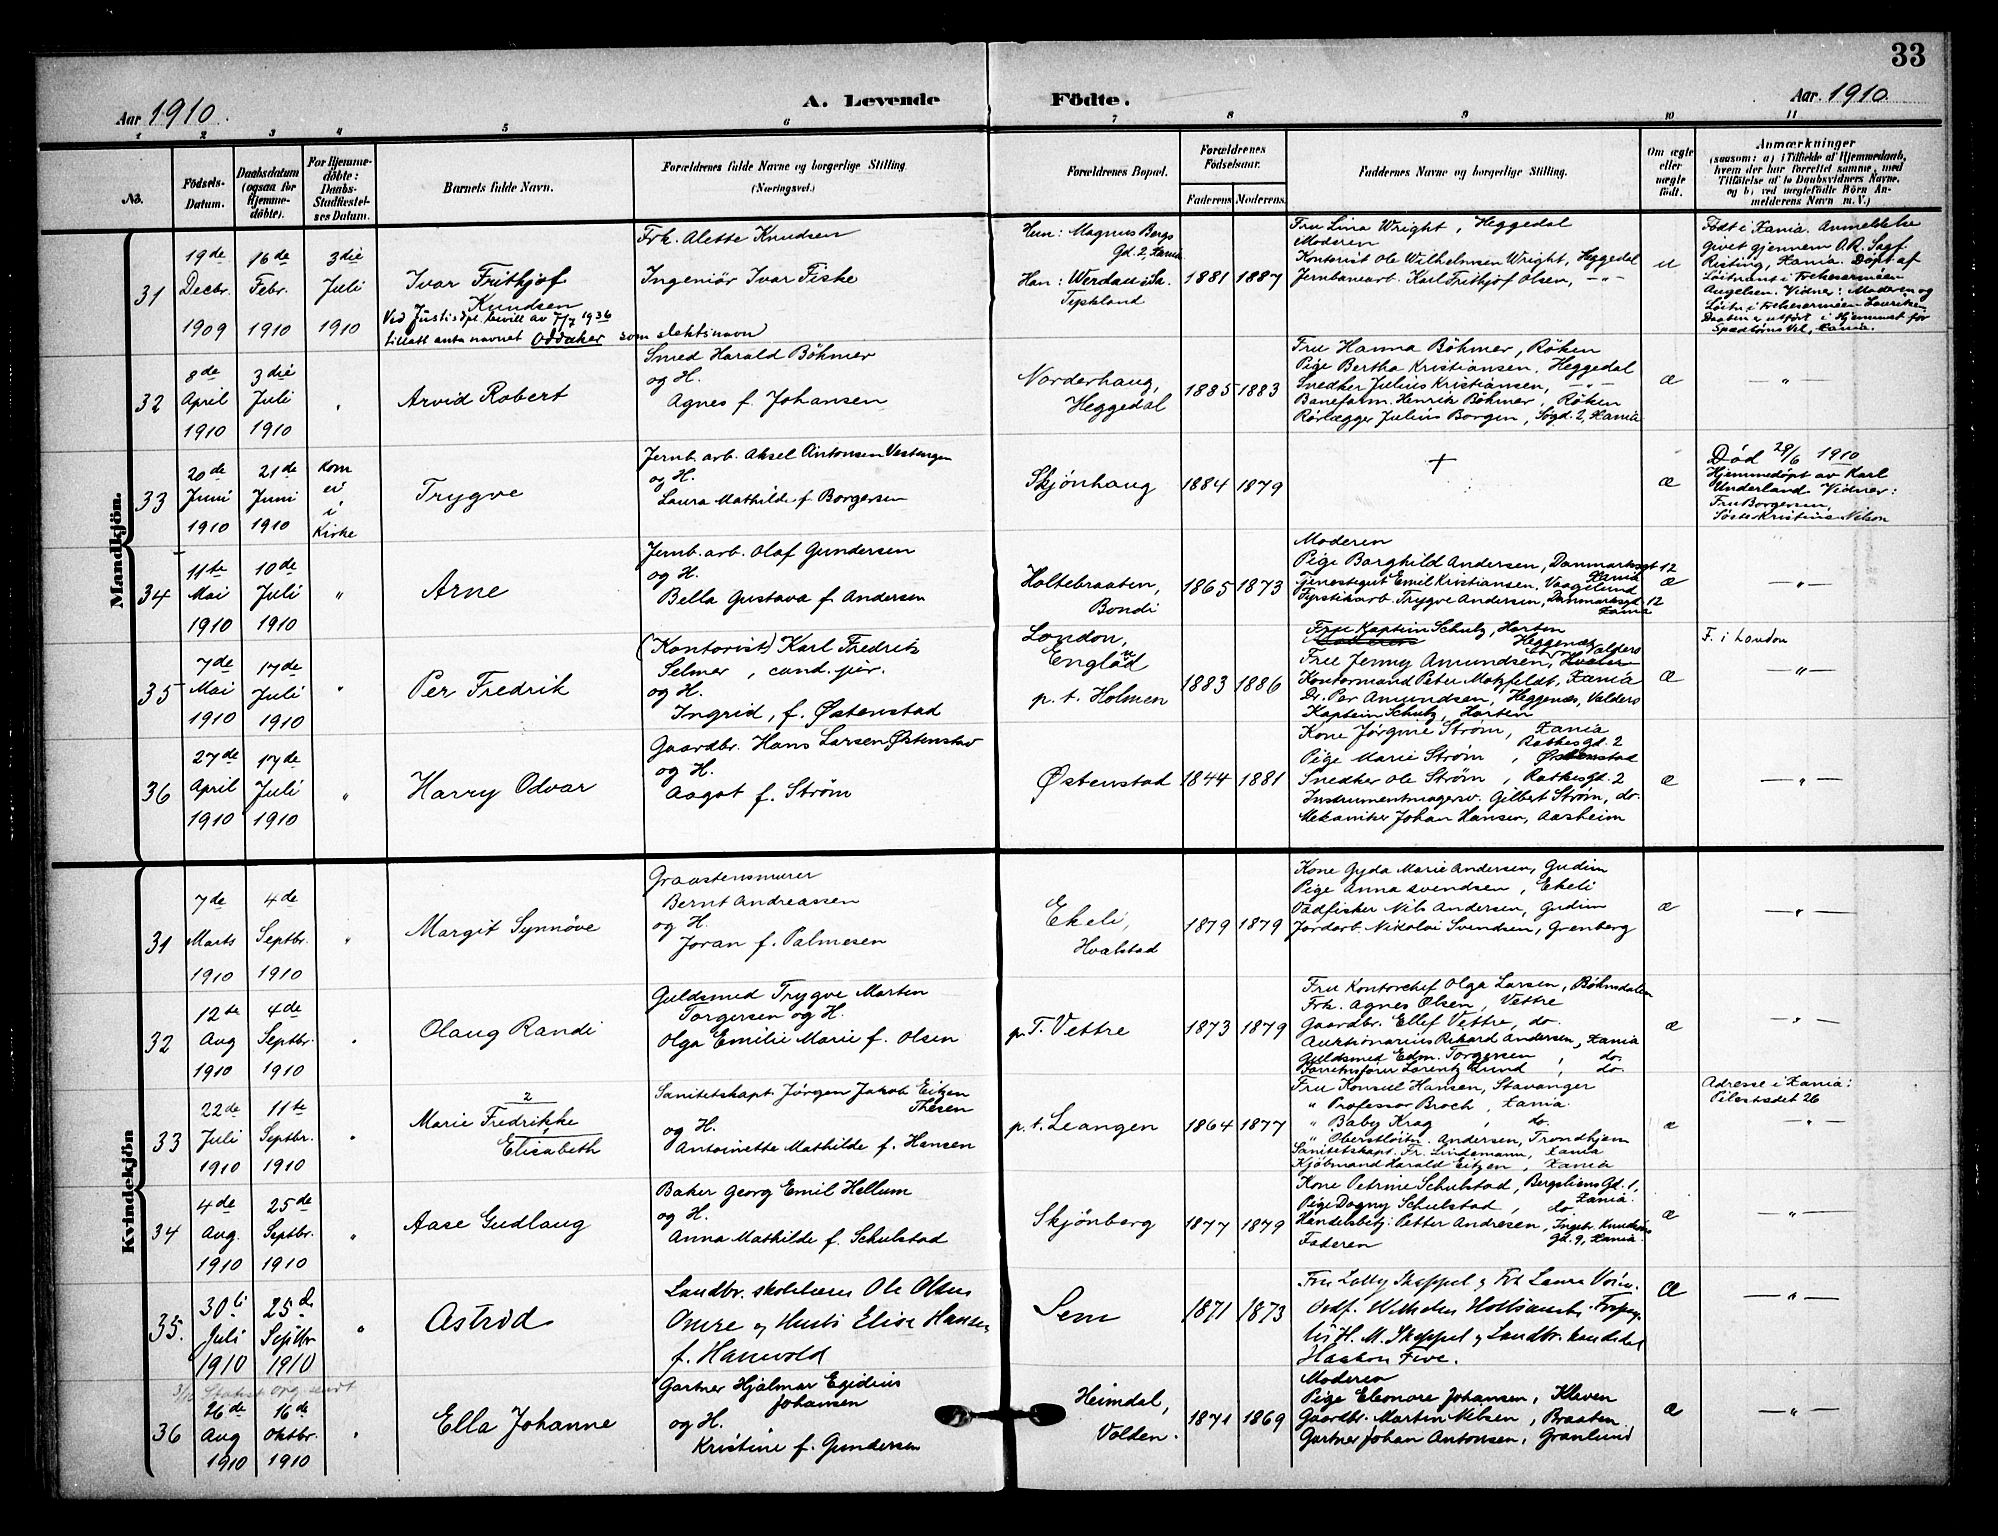 33
Aar 1910.
A. Levende
Födte.
Aar. 1910
1 2 3 4 5 6 7 8 9 10 11
No.
Födsels-Datum.
Daabsdatum (ogsaa for Hjemmedöbte).
For Hjemmedöbte: Daabs-Stadfæstelses Datum.
Barnets fulde Navn.
Forældrenes fulde Navne og borgerlige Stilling (Næringsvei.)
Forældrenes Bopæl.
Forældrenes Födselsaar.
Faderens Moderens.
Faddernes Navne og borgerlige Stilling.
Om ægte eller uægte födt.
Anmærkninger
(saasom: a) i Tilfælde af Hjemmedaab, hvem der har forrettet samme, med Tilföielse af to Daabsvidners Navne, og b) ved uægtefödte Börn Anmelderens Navn m. V.)
Mandkjön.
31
19de Decbr. 1909
16de Febr. 1910
3die Juli 1910
Ivar Frithjof
Knudsen
Ved Justisdpt. bevill av 7/7 1936
tillatt anta navnet Oddaker som slektsnavn
Frk. Alette Knudsen
Ingeniör Ivar Fiske
Hun: Magnus Bergs
Gd. 2, Xania
Han: Werdau i Sa.
Tyskland
1881 1887
Fru Lina Wright, Heggedal
Moderen
Kontorist Ole Wilhelmsen Wright, Heggedal
Jernbanearb. Karl Frithjof Olsen, -"-
u
Födt i Xania. Anmeldelse
givet gjennem O.R. Sagf.
Risting, Xania. Döpt af
Löitnant i Frelsesarméen
Augelsen. Vidner: Moderen og
Löitn. i Frelsesarméen
Daaben er utfört i Hjemmet for
Spædbörns Vel, Xania.
32
8de April 1910
3die Juli 1910
"
Arvid Robert
Smed Harald Böhmer
og H.
Agnes f. Johansen
Norderhaug,
Heggedal
1885 1883
Fru Hanna Böhmer, Röken
Pige Bertha Kristiansen, Heggedal
Snedker Julius Kristiansen, -"-
Baneform. Henrik Böhmer, Röken
Rörlægger Julius Borgen, Søgd. 2, Xania
æ
-"-
33
20de Juni 1910
21de Juni 1910
Kom ei i Kirke
Trygve
Jernb. arb. Aksel Antonsen Vestengen
og H.
Laura Mathilde f. Borgersen
Skjönhaug
1884 1879
+
æ
Död 28/6 1910
Hjemmedöpt av Karl
Underland Vidner:
Fru Borgersen,
Söster Kristine Nilson
34
11te Mai 1910
10de Juli 1910
"
Arne
Jernb. arb. Olaf Gundersen
og H.
Bella Gustava f. Andersen
Holtebraaten,
Bondi
1865 1873
Moderen
Pige Borghild Andersen, Danmarksgt 12
Xania
Tjenestegut Emil Kristiansen, Vaagelund
Typstikarb. Trygve Andersen, Danmarksgd. 12
Xania
æ
-"-
35
7de Mai 1910
17de Juli 1910
"
Per Fredrik
(Kontorist) Karl Fredrik
Selmer, cand. jur.
og H.
Ingrid, f. Østenstad
London,
England
p. t. Holmen
1883 1886
Fru Kaptein Schulz, Horten
Heggenæs, Valders
Fru Jenny Amundsen,
Kontormand Peter Motzfeldt, Xania
Dr. Per Amundsen, Heggenæs, Valders
Kaptein Schulz, Horten
æ
F. i London
"
36
27de April 1910
17de Juli 1910
"
Harry Odvar
Gaardbr. Hans Larsen Østenstad
og H.
Aagot f. Ström
Østenstad
1844 1881
Kone Jörgine Ström, Xania
Ratkes gd. 2
Pige Marie Ström, Østenstad
Snedker Ole Ström, Ratkes Gd. 2
Instrumentmagersv. Gilbert Ström, do.
Mekaniker Johan Hansen, Aasheim
æ
-"-
Kvindekjön
31
7de Marts 1910
4de Septbr. 1910
"
Margit Synnöve
Graastensmurer
Bernt Andreassen
og H.
Joran f. Palmesen
Ekeli,
Hvalstad
1879 1879
Kone Gyda Marie Andersen, Gudim
Pige Anna Svendsen, Ekeli
Vadfisker Nils Andersen, Gudim
Jordarb. Nikolai Svendsen, Grenberg
æ
-"-
32
12te Aug 1910
4de Septbr. 1910
"
Olaug Randi
Guldsmed Trygve Morten
Torgersen og H.
Olga Emilie Marie f. Olsen
p. T. Vettre
1873 1879
Fru Kontorchef Olga Larsen, Böhmdalen
Frk. Agnes Olsen, Vettre
Gaardbr. Ellef Vettre, do.
Auktionarius Rikard Andersen, Xania
Guldsmed Edm. Torgersen, do.
Lorentz Lund, do.
æ
-"-
33
22de Juli 1910
11te Septbr. 1910
"
2
Marie Fredrikke
1
Elisabeth
Sanitetskapt. Jörgen Jakob Eitzen
Thesen
og H.
Antoinette Mathilde f. Hansen
p. t. Leangen
1864 1877
Fru Konsul Hansen, Stavanger
" Professor Broch, Xania.
" Baby Krag, do.
" Oberstlöitn. Andersen, Trondhjem
Sanitetskapt. Fr. Lindemann, Xania
Kjöbmand Harald Eitzen, Xania
æ
Adresse i Xania:
Pilestrædet 26
-"-
34
4de Aug. 1910
25de Septbr. 1910
"
Aase Gudlaug
Baker Georg Emil Hellum
og H.
Anna Mathilde f. Schulstad
Skjönberg
1877 1879
Kone Petrine Schulstad, Bergsliens Gd. 1,
Xania.
Pige Dagny Schulstad, do
Handelsbetj. Petter Andresen, Ingebr. Knudsens
Gd. 9, Xania.
Faderen
æ
-"-
35.
30te Juli 1910
25de Septbr 1910
"
Astrid
Landbr. skolelærer Ole Olsen
Omre og Hustr. Elise Hansen
f. Hanevold
Sem
1871 1873
Fru Lolly Skappel og Frk Laura
H. M. Skappel og Landbr. kandidat
Haakon Five.
æ
-"-
36
26de Aug 1910
16de Oktbr. 1910
"
Ella Johanne
Gartner Hjalmar Egidius
Johansen
og H.
Kristine f. Gundersen
Heimdal,
Volden.
1871 1869
Moderen
Pige Eleonore Johansen, Kleven
Gaardbr. Martin Nilsen, Braaten
Gartner Johan Antonsen, Granlund
æ
-"-